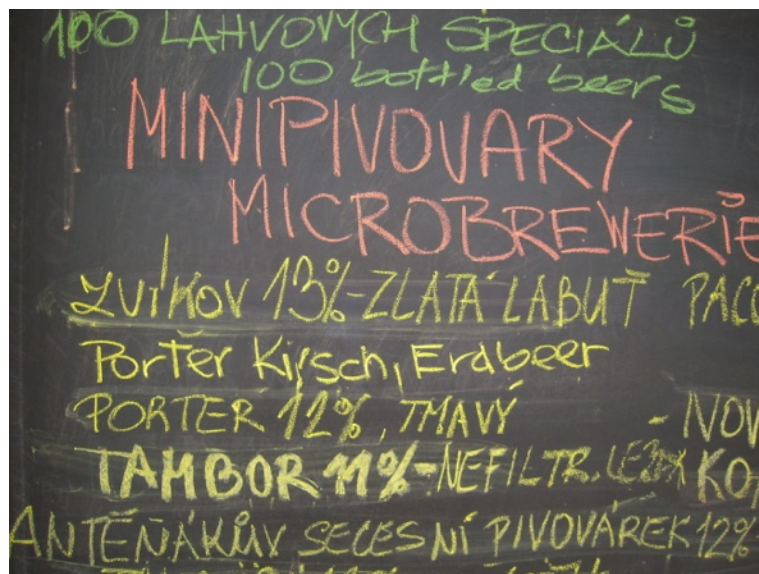 100 LAHVOVÝCH SPECIÁLŮ
100 bottled beers
MINIPIVOVARY
MICROBREWERIE
ZVÍKOV 13%-ZLATÁ LABUŤ PACO
Porter Kirsch, Erdbeer
PORTER 12%, TMAVÝ - NOV
TAMBOR 11%-NEFILTR. LEŽÁK KO
ANTĚŇÁKŮV SECESNÍ PIVOVÁREK 12%